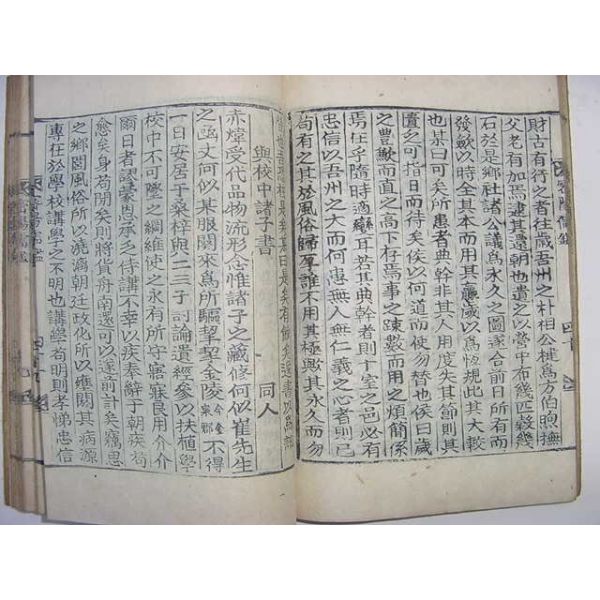 財古有行之者往歲吾州之朴相公權爲方伯煦撫
父老有加焉逮其還朝也遺之以營中布幾匹穀幾
石於是鄉社諸公議爲永久之圖遂合前日所有而
發歛以時全其本而用其贏歲以爲恆規此其大較
也某曰有所患者典幹非其人用度失其節則其
匱可指日而待矣俟以何道而使勿替也侯曰歲
之豊歉而直之高下存焉事之踈數而用之煩簡係
焉在乎隨時適變耳若其典幹者則十室之邑必有
忠信以吾州之大而何患無人無仁義之心者則已
苟有之其於風俗歸厚誰不用其極興其永久而勿
是矣某曰是矣有
與校中諸子書 同人
赤煒受代品物流形念惟諸子之藏修何似崔先生
之函丈何似某服闋來爲所驅挈挈金陵 今金寧郡 不得
一日安居于桑梓與二三子討論遺經參以扶植學
校中不可墜之綱維使之永有所守寤寐良用介介
爾日者認蒙恩忝之侍講不幸以疾奏辭于朝疾苟
愈矣身苟閑矣則將貨舟南還可以遂前計矣竊思
之鄉閭風俗所以澆漓朝廷政化所以壅閼其病源
專在於學校講學之不明也講學苟明則孝悌忠信